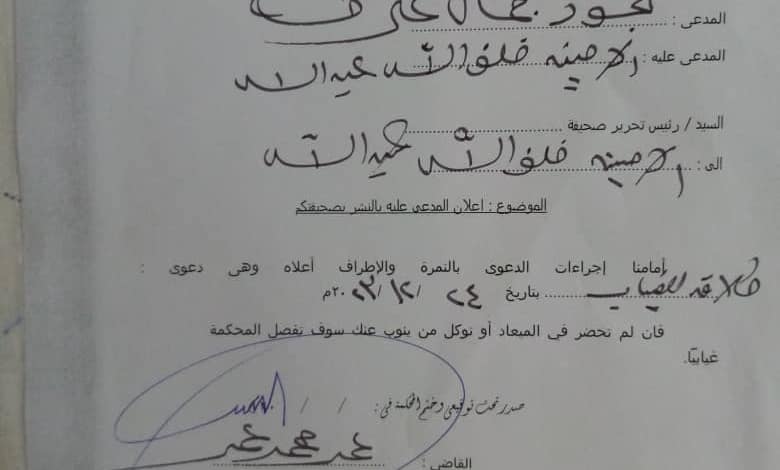 المدعى :
المدعى عليه : الامينه خلف الله عبد الله
السيد / رئيس تحرير صحيفة
الى : الامينه خلف الله عبد الله
الموضوع : اعلان المدعي عليه بالنشر بصحيفتكم
أمامنا إجراءات الدعوى بالنمرة والإطراف أعلاه وهى دعوى :
طلاقه للغياب بتاريخ ٢٤ / ١٢ / ٢٠٢٣م
فان لم تحضر في الميعاد أو توكل من ينوب عنك سوف تفصل المحكمة
غيابيًا.
صدر تحت توقيعي وختم المحكمة في : / /
القاضي : عمر محمد عمر